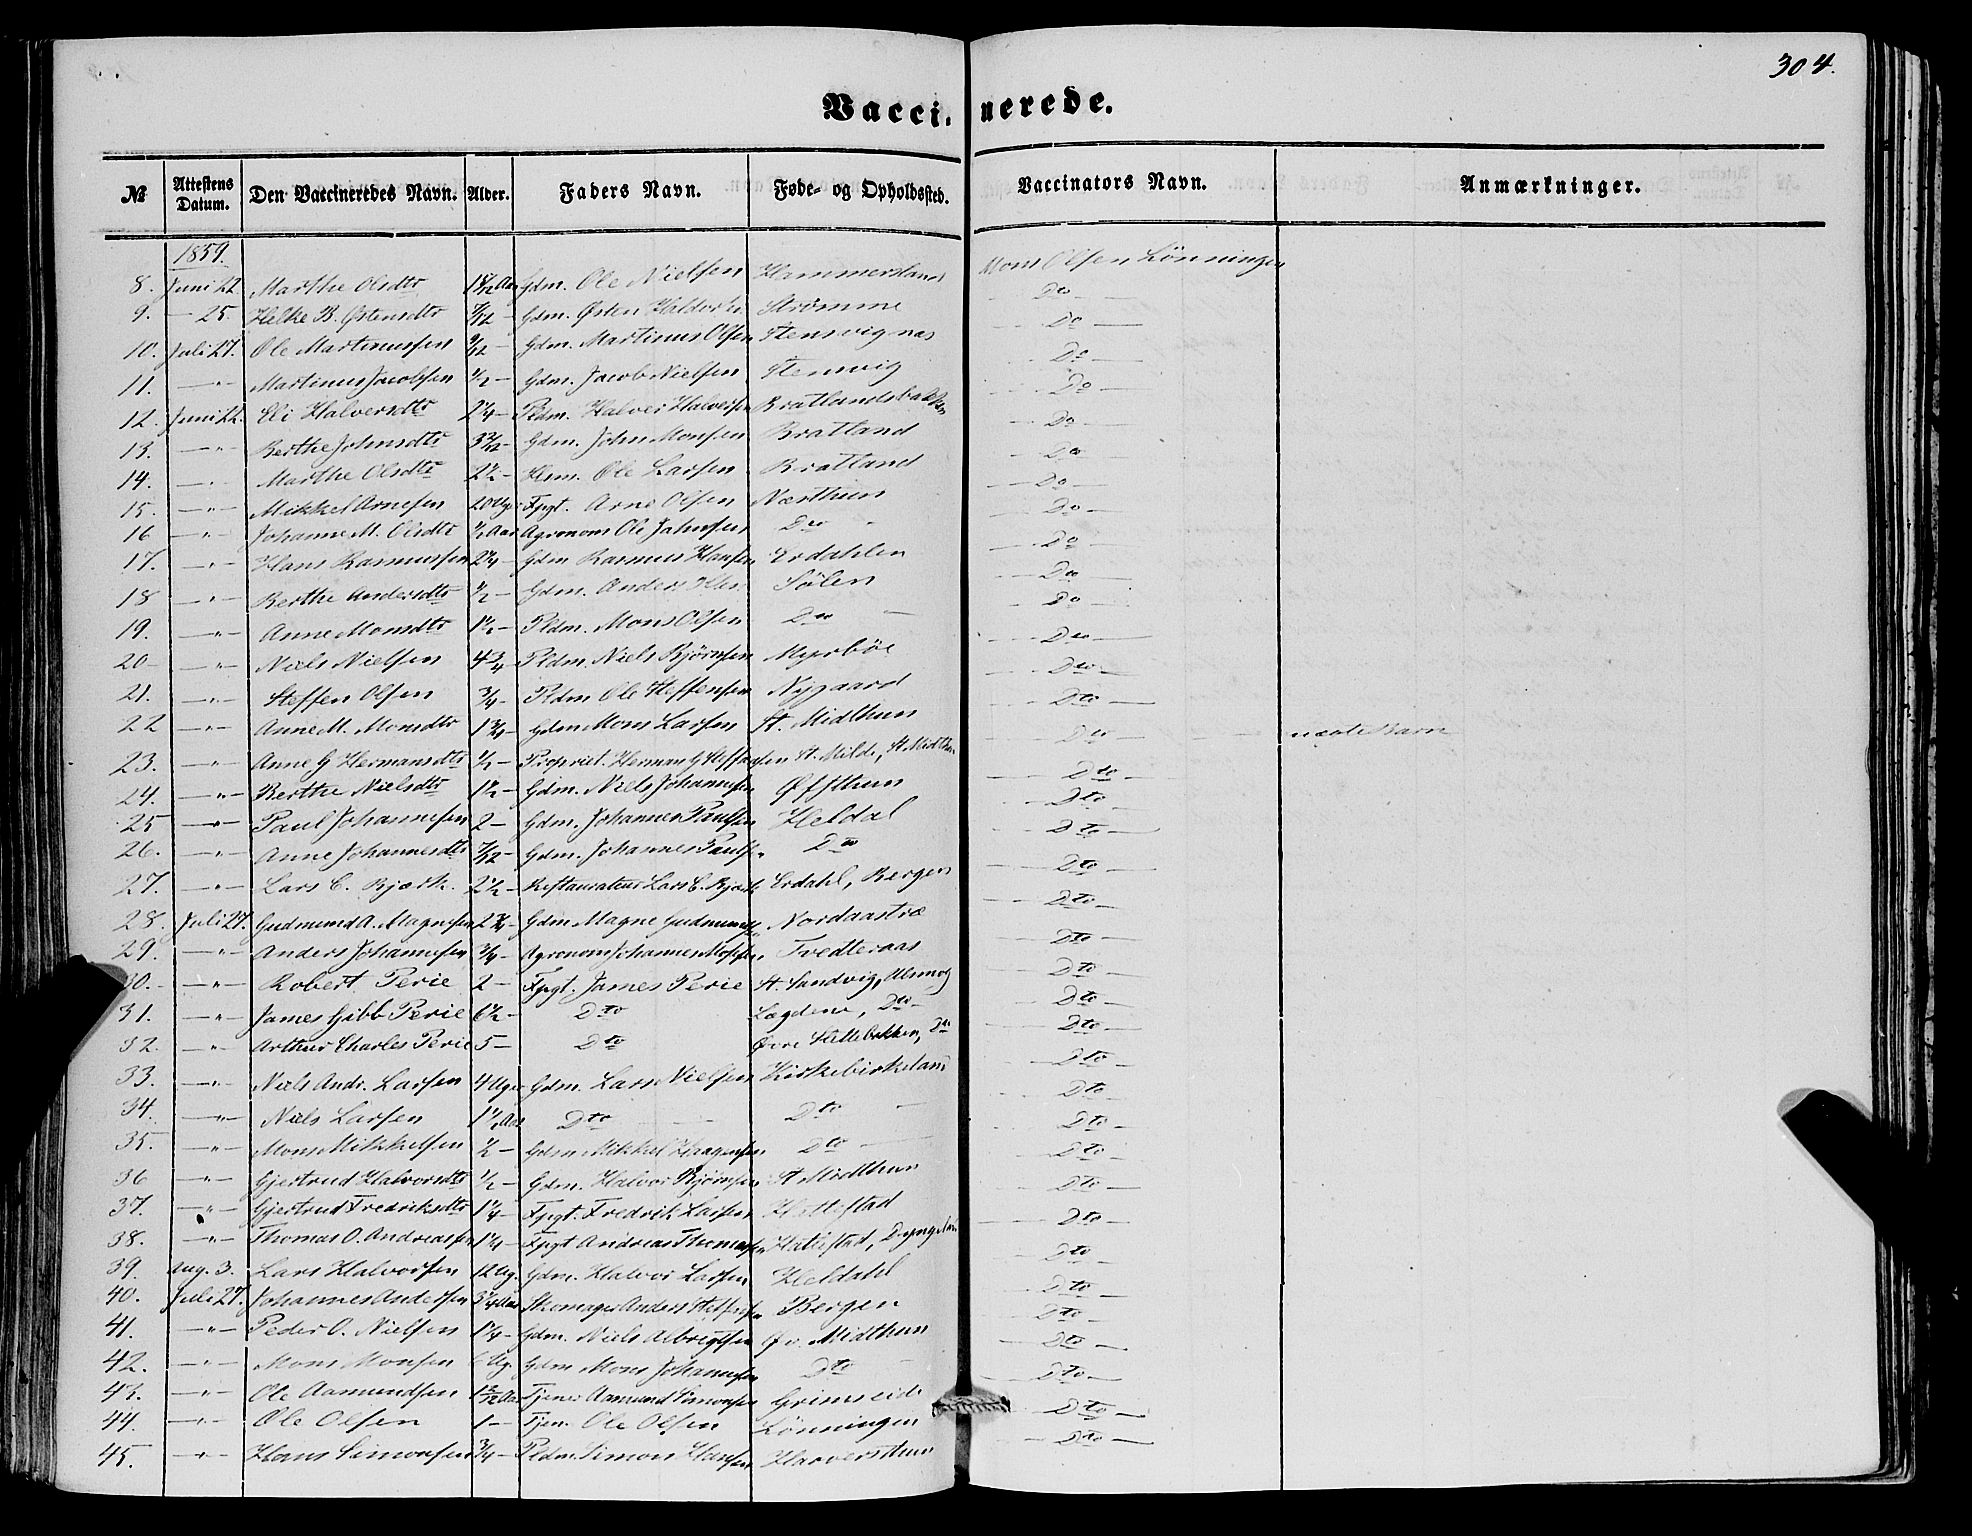 304.
Vaccinerede.
№ Attestens Datum. Den Vaccineredes Navn. Alder. Faders Navn. Føde- og Opholdssted. Vaccinators Navn. Anmærkninger.
1859.
8. Juni 22 Marthe Olsdtr Gdm. Ole Nielsen Hammersland Mons Olsen Lönningen
9. — 25. Helke B. Østensdtr 7/12 — Gdm. Østen Strømme Do —
10. Juli 27. Ole Martinussen 9/12 — Gdm. Martinus Olsen Stensvignæs Do —
11. —"— Martinus Jacobsen 1/2 — Gdm. Jacob Nielsen Stensvig Do —
12. Juni 22. Eli Halversdtr 2 1/4 — Pldm. Halver Halversen Bratlandsbakken Do —
13. —"— Berthe Johnsdtr Gdm. John Monsen Bratland Do —
14. —"— Marthe Olsdtr 2 1/2 — Hsm. Ole Larsen Bratland Do —
15. —"— Mikkel Arnesen 20 Uger Fpgt. Arne Olsen Næsthun Do —
16 —"— Johanne M. Olsdtr 1/2 Aar Agronom Ole Johnsen Do Do —
17. —"— Hans Rasmussen 2 1/4 — Gdm Rasmus Hansen Erdahlen Do —
18 —"— Berthe Andersdtr 1/2 — Gdm. Anders Sølen Do —
19. —"— Anne Monsdtr 1 1/2 — Pldm. Mons Olsen Do — Do —
20 —"— Niels Nielsen 4 3/4 — Pldm. Niels Bjørnsen Myrböe Do —
21. —"— Steffen Olsen 3/4 — Pldm Ole Steffensen Nygaard Do —
22 —"— Anne M. Monsdtr 1 3/4 — Gdm Mons Larsen St. Midthun Dto —
23. —"— Anne G Hermansdtr 1/2 — Propriet. Herman G Steffensen St. Milde, St. Midthun Do — uægte Barn
24. —"— Berthe Nielsdtr 1 1/2 — Gdm. Niels Johannesen Øfsthun Dto —
25 —"— Paul Johannesen 2 — Gdm. Johannes Paulsen Heldal Dto —
26. —"— Anne Johannesdtr 7/12 — Gdm. Johannes Paulsen Do Dto —
27. —"— Lars C. Bjørk. 2 1/2 — Restaurateur Lars C. Bjørk Erdahl, Bergen Dto —
28. Juli 27. Gudmund A. Magnesen Gdm Magne Gudmunds. Nordaastræ Dto —
29. —"— Anders Johannesen 3/4 — Agronom Johannes Mossen Tvedteraas Dto —
30. —"— Robert Perie 2 — Fpgt. James Perie St. Sandvig, Dto —
31. —"— James Gibb Perie 6 1/2 — Dto Lægdene, Do — Dto —
32. —"— Arthur Charles Perie 5 — Dto Øvre Do Dto —
33. —"— Niels Andr. Larsen 4 Uger Gdm. Lars Nielsen Kirkebirkeland Dto —
34. —"— Niels Larsen 1 1/2 Aar Dto Dto — Dto —
35. —"— Mons Mikkelsen 1/2 — Gdm Mikkel Haagensen Dto — Dto —
36 —"— Gjertrud Halvorsdtr 1/2 — Gdm. Halvor Bjørnsen St Midthun Dto —
37. —"— Gjertrud Fredriksdtr 1 1/4 — Fpgt. Fredrik Larsen Hattestad Dto —
38. —"— Thomas O. Andreassen 1 1/4 — Fpgt Andreas Thomassen Hattestad, Dyngeland Dto —
39. Aug. 3. Lars Halvorsen 12 Ug. Gdm. Halvor Larsen Heldahl Dto —
40. Juli 27. Johannes Andersen 3 1/4 Aar Skomager Anders Steffensen Bergen Dto —
41. —"— Peder O. Nielsen 1 1/4 — Gdm. Niels Albrigtsen Øv. Midthun Dto —
42. —"— Mons Monsen 6 Ug. Gdm Mons Johannesen Dto — Dto —
43. —"— Ole Aamundsen Tjener Aamund Simonsen Grimseide Dto —
44. —"— Ole Olsen 1 — Tjen. Ole Olsen Lönningen Dto —
45. —"— Hans Simonsen 3/4 — Pldm. Simon Hansen Harversthun Dto —